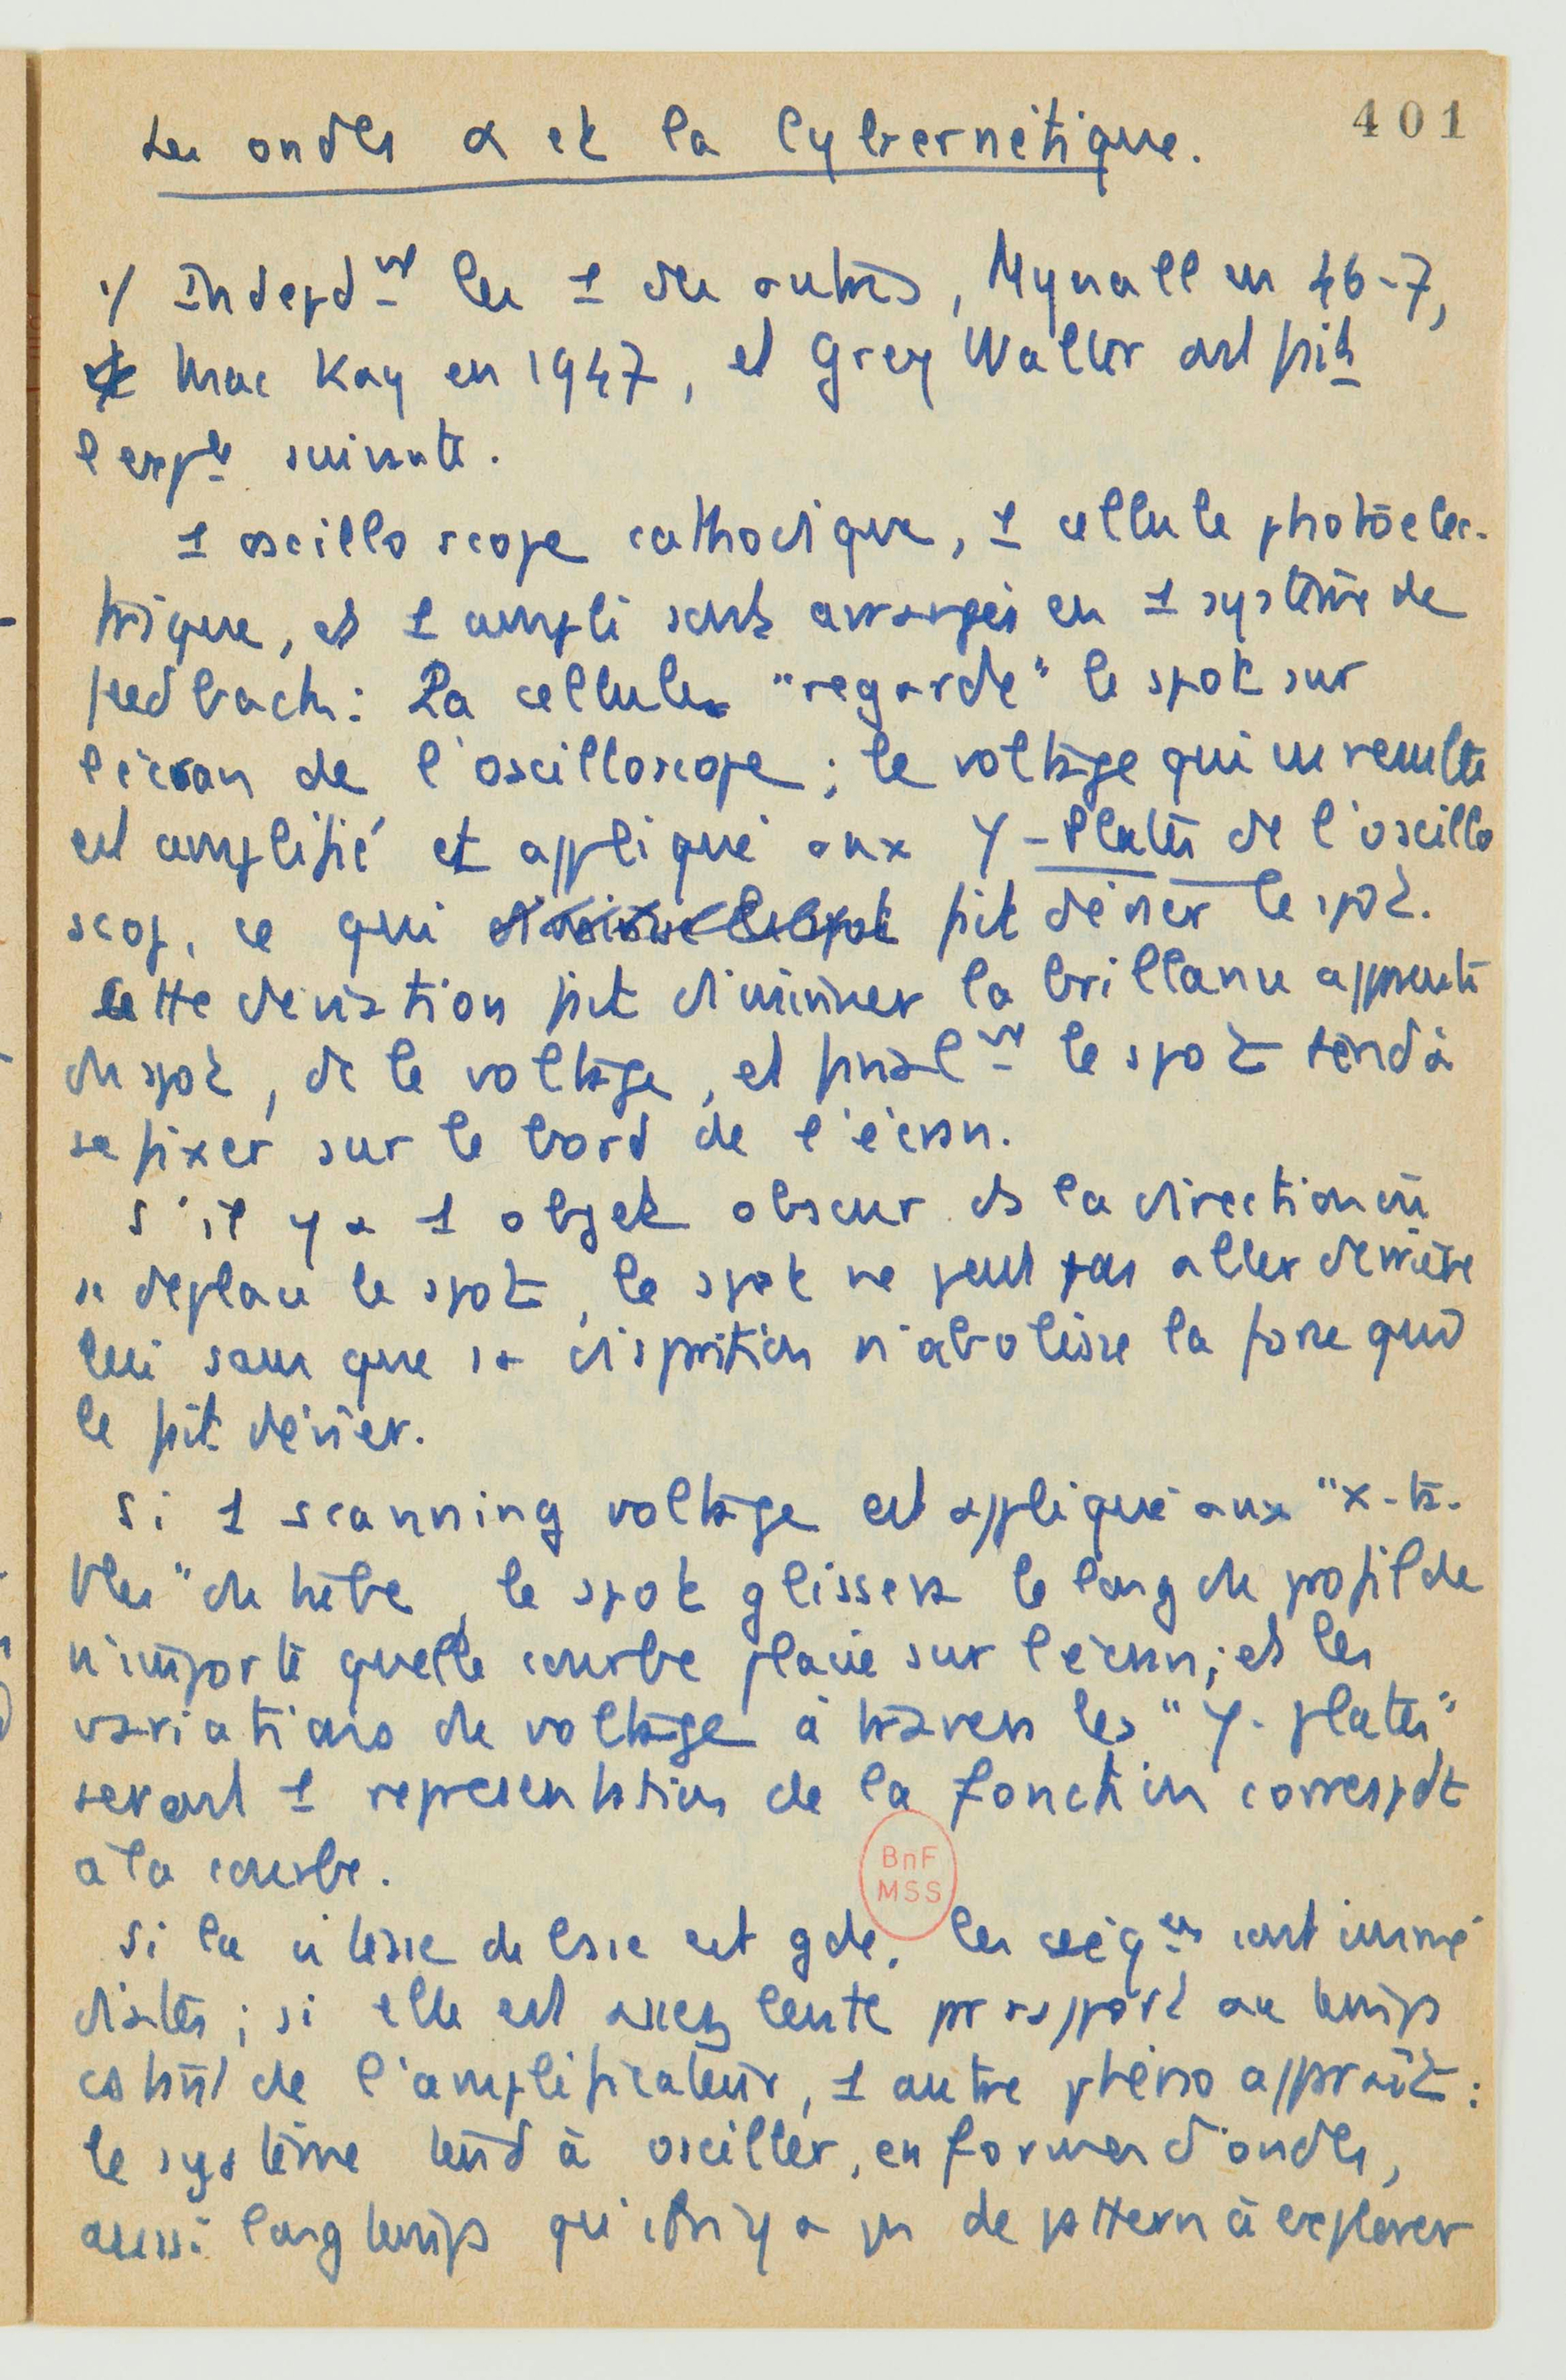 401
Les ondes α et la Cybernétique.
1/ Indepdnt les 1 des autres, Mynall en 46-7,
Mac Kay en 1947, et Grey Walter ont fait
l'expce suivante.
1 oscilloscope cathodique, 1 cellule photoélec-
trique, et 1 ampli sont arrangés en 1 système de
feedback : La cellule "regarde" le spot sur
l'écran de l'oscilloscope ; le voltage qui en résulte
est amplifié et appliqué aux Y-Plates de l'oscillo
scop, ce qui fait dévier le spot.
Cette déviation fait diminuer la brillance apparente
du spot, dc le voltage, et finalnt le spot tend à
se fixer sur le bord de l'écran.
S'il y a 1 objet obscur ds la direction où
se déplace le spot, le spot ne peut pas aller derrière
lui sans que sa disparition n'abolisse la force qui
le fait dévier.
Si 1 scanning voltage est appliqué aux "x-ta-
bles" du tube, le spot glissera le long du profil de
n'importe quelle courbe placée sur l'écran ; et les
variations de voltage à travers les "Y-plates"
seront 1 représentation de la fonction correspdt
à la courbe.
BnF
MSS
Si la vitesse de est gde, les sont immé
diates ; si elle est assez lente par rapport au temps
de l'amplificateur, 1 autre phéno apparaît :
le système tend à osciller, en formes d'ondes,
aussi longtemps qu'il n'y a pas de pattern à explorer